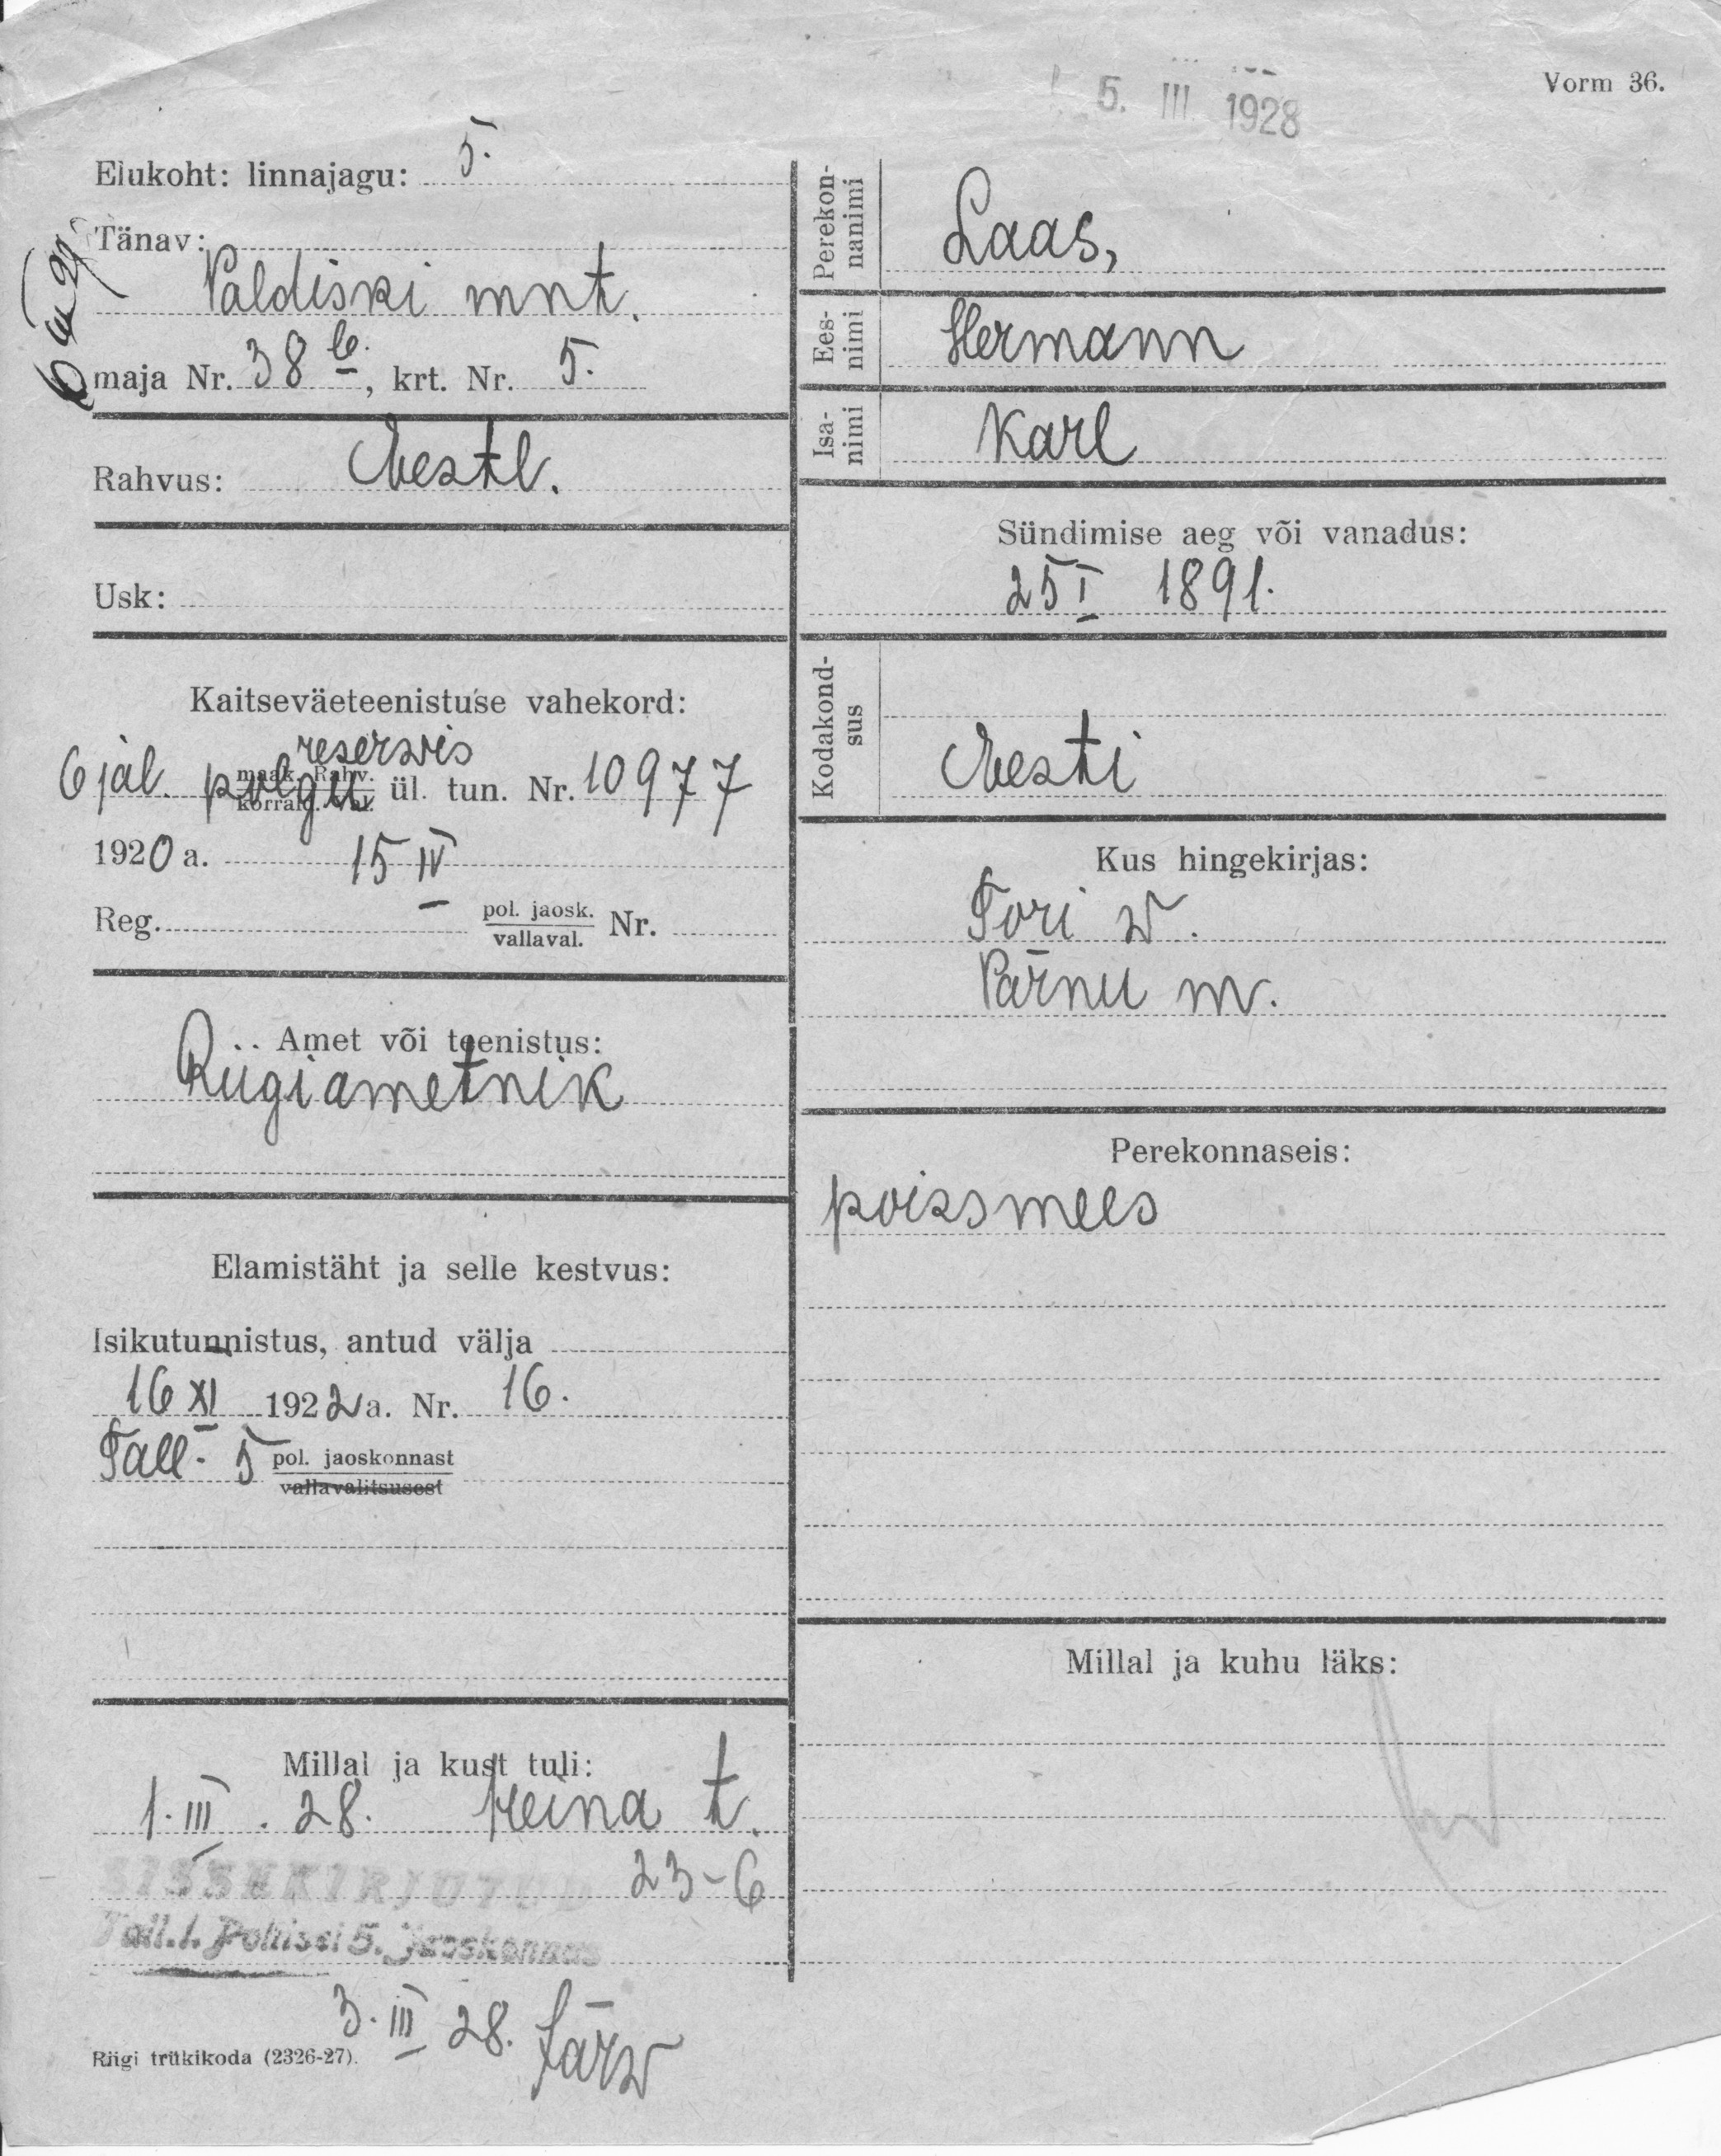 5. III 1928
Vorm 36.
Elukoht: linnajagu: 5.
Tänav:
Paldiski mnt.
maja Nr. 38 b., krt. Nr. 5.
Rahvus: Eestl.
Usk:
Kaitseväeteenistuse vahekord:
reservis
6 jal. polgu ül. tun. Nr. 10977
1920 a. 15 IV
Reg. pol. jaosk. Nr.
vallaval.
Amet või teenistus:
Riigiametnik
Elamistäht ja selle kestvus:
Isikutunnistus, antud välja
16 XI 1922 a. Nr. 16.
Tall. 5 pol. jaoskonnast
vallavalitsusest
Millal ja kust tuli:
1. III. 28. Heina t.
23-6
SISSEKIRJUTUD
Tall. l. Politsei 5. jaoskonnas
3. III 28. Järw
Riigi trükikoda (2326-27).
Perekon-
nanimi
Laas,
Ees-
nimi
Hermann
Isa-
nimi
Karl
Sündimise aeg või vanadus:
25 I 1891.
Kodakond-
sus
Eesti
Kus hingekirjas:
Tori v.
Pärnu m.
Perekonnaseis:
poissmees
Millal ja kuhu läks: